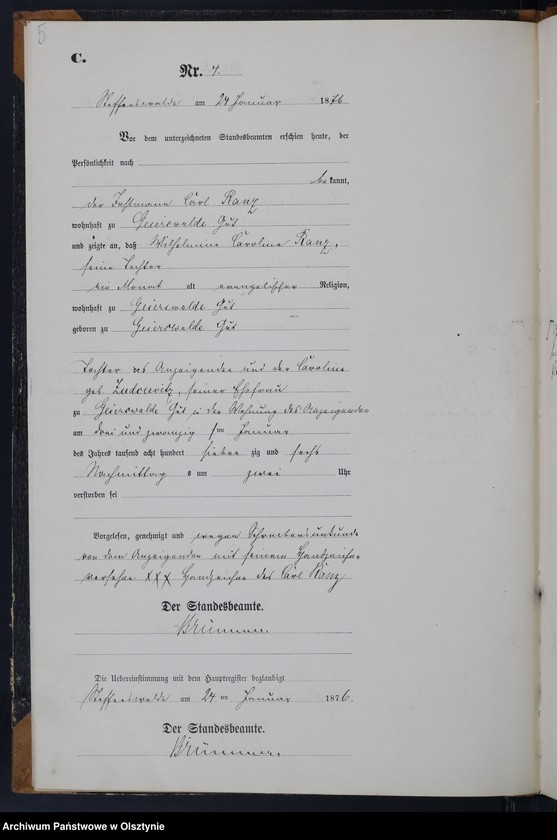 5
C.
Nr. 4.
Steffenswalde am 24 Januar 1876
Vor dem unterzeichneten Standesbeamten erschien heute, der
Persönlichkeit nach
bekannt,
der Carl Ranz
wohnhaft zu Geierswalde Gut
und zeigte an, daß Wilhelmine Caroline Ranz,
seine Tochter
ein Monat alt evangelischer Religion,
wohnhaft zu Geierswalde Gut
geboren zu Geierswalde Gut
Tochter des Anzeigenden und der Caroline
geb. seiner Ehefrau
zu Geierswalde Gut in der Wohnung des Anzeigenden
am drei und zwanzig sten Januar
des Jahres tausend acht hundert sieben zig und sechs
Nachmittag s um zwei Uhr
verstorben sei
Vorgelesen, genehmigt und wegen Schreibensunkunde
von dem Anzeigenden mit seinem Handzeichen
versehen XXX Handzeichen des Carl Ranz
Der Standesbeamte.
Brümmer.
Die Uebereinstimmung mit dem Hauptregister beglaubigt
Steffenswalde am 24 ten Januar 1876.
Der Standesbeamte.
Brümmer.
Archiwum Państwowe w Olsztynie